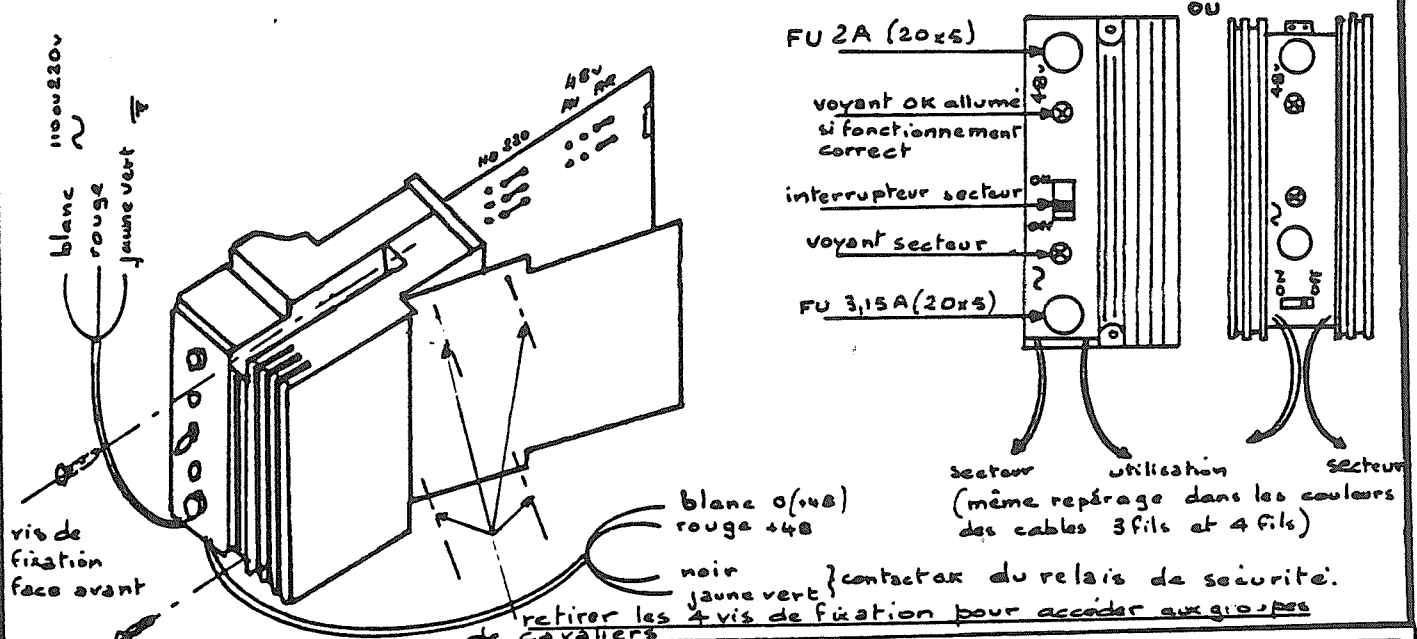 blanc
rouge
jaune vert
110 ou 220v
~
110 220
48v
AV AR
vis de
fixation
face avant
blanc 0(+48)
rouge +48
noir
jaune vert
} contact ok du relais de sécurité.
retirer les 4 vis de fixation pour accéder aux groupes
de cavaliers
OU
FU 2A (20x5)
voyant OK allumé
si fonctionnement
correct
interrupteur secteur
voyant secteur
FU 3,15A (20x5)
48v
~
48v
~
ON OFF
secteur utilisation secteur
(même repérage dans les couleurs
des cables 3 fils et 4 fils)